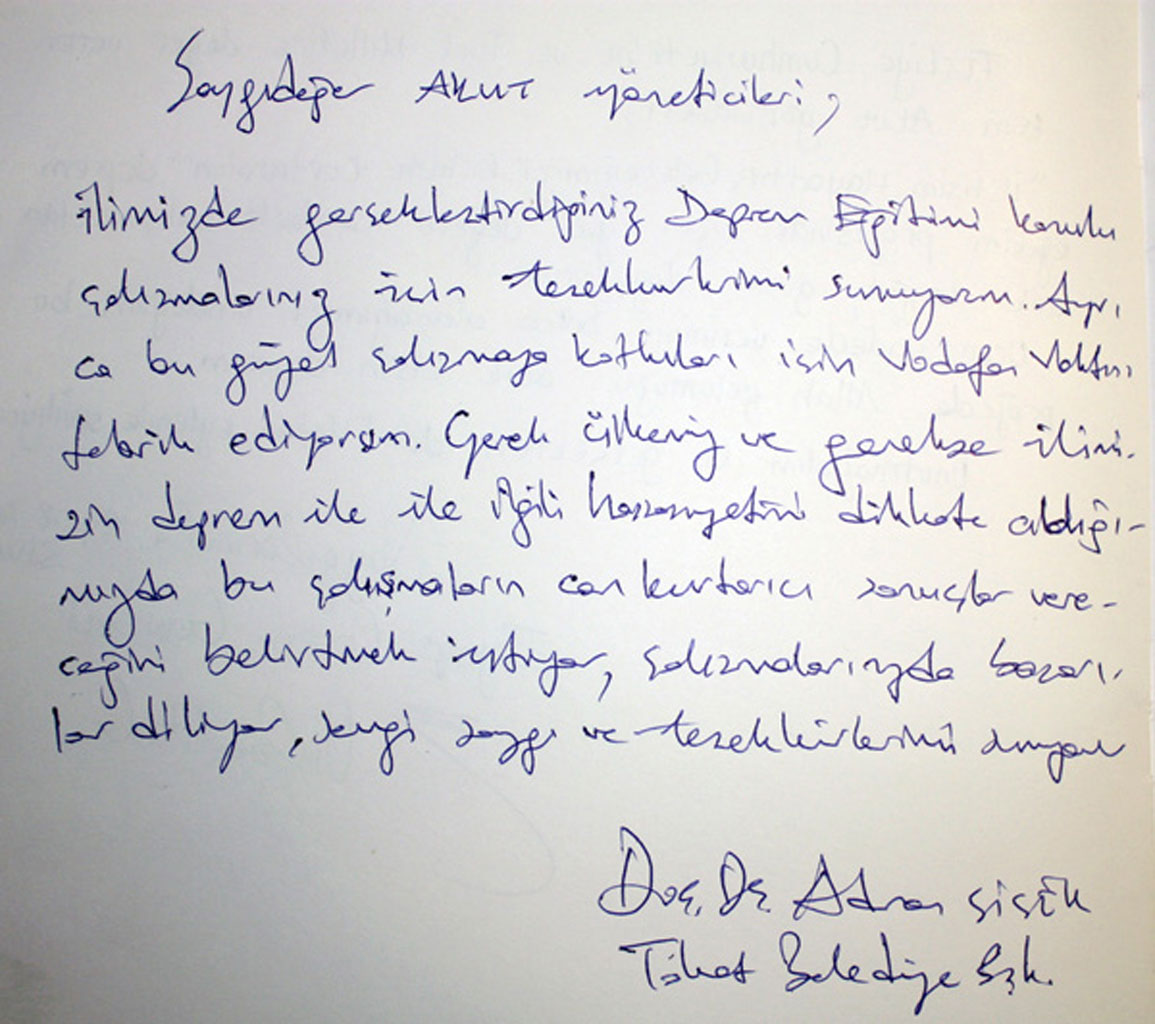 Saygıdeğer AKUT yöneticileri,
İlimizde gerçekleştirdiğiniz Deprem Eğitimi konulu
çalışmalarınız için teşekkürlerimi sunuyorum. Ayrı
ca bu güzel çalışmaya katkıları için Vodafon Vakfını
tebrik ediyorum. Gerek ülkemiz ve gerekse ilimi-
zin deprem ile ile ilgili hassasiyetini dikkate aldığı-
mızda bu çalışmaların can kurtarıcı sonuçlar vere-
ceğini belirtmek istiyor, çalışmalarınızda başarı-
lar diliyor, sevgi saygı ve teşekkürlerimi sunuyorum
Doç. Dr. Adnan Çiçek
Tokat Belediye Bşk.